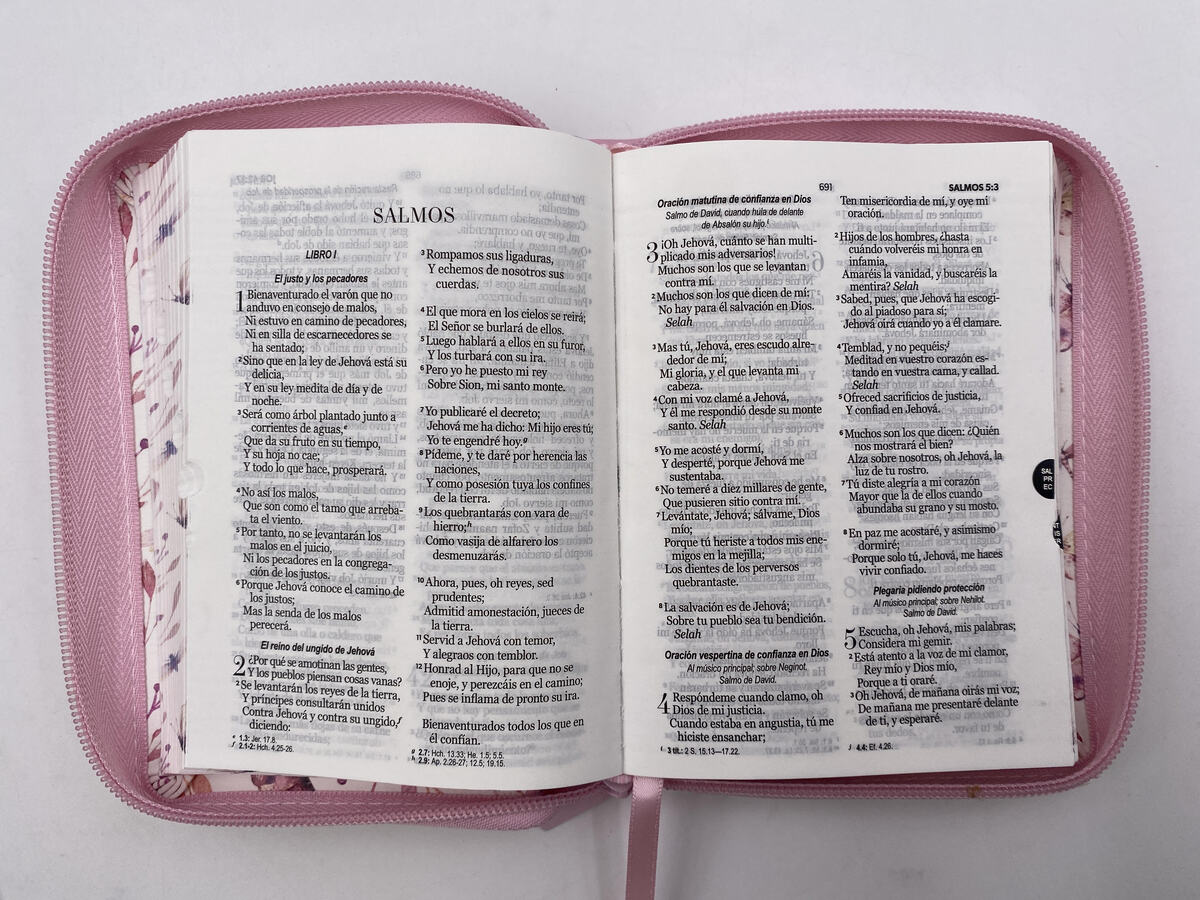 SALMOS
LIBRO I
El justo y los pecadores
1 Bienaventurado el varón que no
anduvo en consejo de malos,
Ni estuvo en camino de pecadores,
Ni en silla de escarnecedores se
ha sentado;
2 Sino que en la ley de Jehová está su
delicia,
Y en su ley medita de día y de
noche.
3 Será como árbol plantado junto a
corrientes de aguas,e
Que da su fruto en su tiempo,
Y su hoja no cae;
Y todo lo que hace, prosperará.
4 No así los malos,
Que son como el tamo que arreba-
ta el viento.
5 Por tanto, no se levantarán los
malos en el juicio,
Ni los pecadores en la congrega-
ción de los justos.
6 Porque Jehová conoce el camino de
los justos;
Mas la senda de los malos
perecerá.
El reino del ungido de Jehová
2 ¿Por qué se amotinan las gentes,
Y los pueblos piensan cosas vanas?
2 Se levantarán los reyes de la tierra,
Y príncipes consultarán unidos
Contra Jehová y contra su ungido,f
diciendo:
e 1.3: Jer. 17.8.
f 2.1-2: Hch. 4.25-26.
3 Rompamos sus ligaduras,
Y echemos de nosotros sus
cuerdas.
4 El que mora en los cielos se reirá;
El Señor se burlará de ellos.
5 Luego hablará a ellos en su furor,
Y los turbará con su ira.
6 Pero yo he puesto mi rey
Sobre Sion, mi santo monte.
7 Yo publicaré el decreto;
Jehová me ha dicho: Mi hijo eres tú;
Yo te engendré hoy.g
8 Pídeme, y te daré por herencia las
naciones,
Y como posesión tuya los confines
de la tierra.
9 Los quebrantarás con vara de
hierro;h
Como vasija de alfarero los
desmenuzarás.
10 Ahora, pues, oh reyes, sed
prudentes;
Admitid amonestación, jueces de
la tierra.
11 Servid a Jehová con temor,
Y alegraos con temblor.
12 Honrad al Hijo, para que no se
enoje, y perezcáis en el camino;
Pues se inflama de pronto su ira.
Bienaventurados todos los que en
él confían.
g 2.7: Hch. 13.33; He. 1.5; 5.5.
h 2.9: Ap. 2.26-27; 12.5; 19.15.
691 SALMOS 5:3
Oración matutina de confianza en Dios
Salmo de David, cuando huía de delante
de Absalón su hijo.i
3 ¡Oh Jehová, cuánto se han multi-
plicado mis adversarios!
Muchos son los que se levantan
contra mí.
2 Muchos son los que dicen de mí:
No hay para él salvación en Dios.
Selah
3 Mas tú, Jehová, eres escudo alre-
dedor de mí;
Mi gloria, y el que levanta mi
cabeza.
4 Con mi voz clamé a Jehová,
Y él me respondió desde su monte
santo. Selah
5 Yo me acosté y dormí,
Y desperté, porque Jehová me
sustentaba.
6 No temeré a diez millares de gente,
Que pusieren sitio contra mí.
7 Levántate, Jehová; sálvame, Dios
mío;
Porque tú heriste a todos mis ene-
migos en la mejilla;
Los dientes de los perversos
quebrantaste.
8 La salvación es de Jehová;
Sobre tu pueblo sea tu bendición.
Selah
Oración vespertina de confianza en Dios
Al músico principal; sobre Neginot.
Salmo de David.
4 Respóndeme cuando clamo, oh
Dios de mi justicia.
Cuando estaba en angustia, tú me
hiciste ensanchar;
i 3 tít.: 2 S. 15.13—17.22.
Ten misericordia de mí, y oye mi
oración.
2 Hijos de los hombres, ¿hasta
cuándo volveréis mi honra en
infamia,
Amaréis la vanidad, y buscaréis la
mentira? Selah
3 Sabed, pues, que Jehová ha escogi-
do al piadoso para sí;
Jehová oirá cuando yo a él clamare.
4 Temblad, y no pequéis;j
Meditad en vuestro corazón es-
tando en vuestra cama, y callad.
Selah
5 Ofreced sacrificios de justicia,
Y confiad en Jehová.
6 Muchos son los que dicen: ¿Quién
nos mostrará el bien?
Alza sobre nosotros, oh Jehová, la
luz de tu rostro.
7 Tú diste alegría a mi corazón
Mayor que la de ellos cuando
abundaba su grano y su mosto.
8 En paz me acostaré, y asimismo
dormiré;
Porque solo tú, Jehová, me haces
vivir confiado.
Plegaria pidiendo protección
Al músico principal; sobre Nehilot.
Salmo de David.
5 Escucha, oh Jehová, mis palabras;
Considera mi gemir.
2 Está atento a la voz de mi clamor,
Rey mío y Dios mío,
Porque a ti oraré.
3 Oh Jehová, de mañana oirás mi voz;
De mañana me presentaré delante
de ti, y esperaré.
j 4.4: Ef. 4.26.
SAL
PR
EC